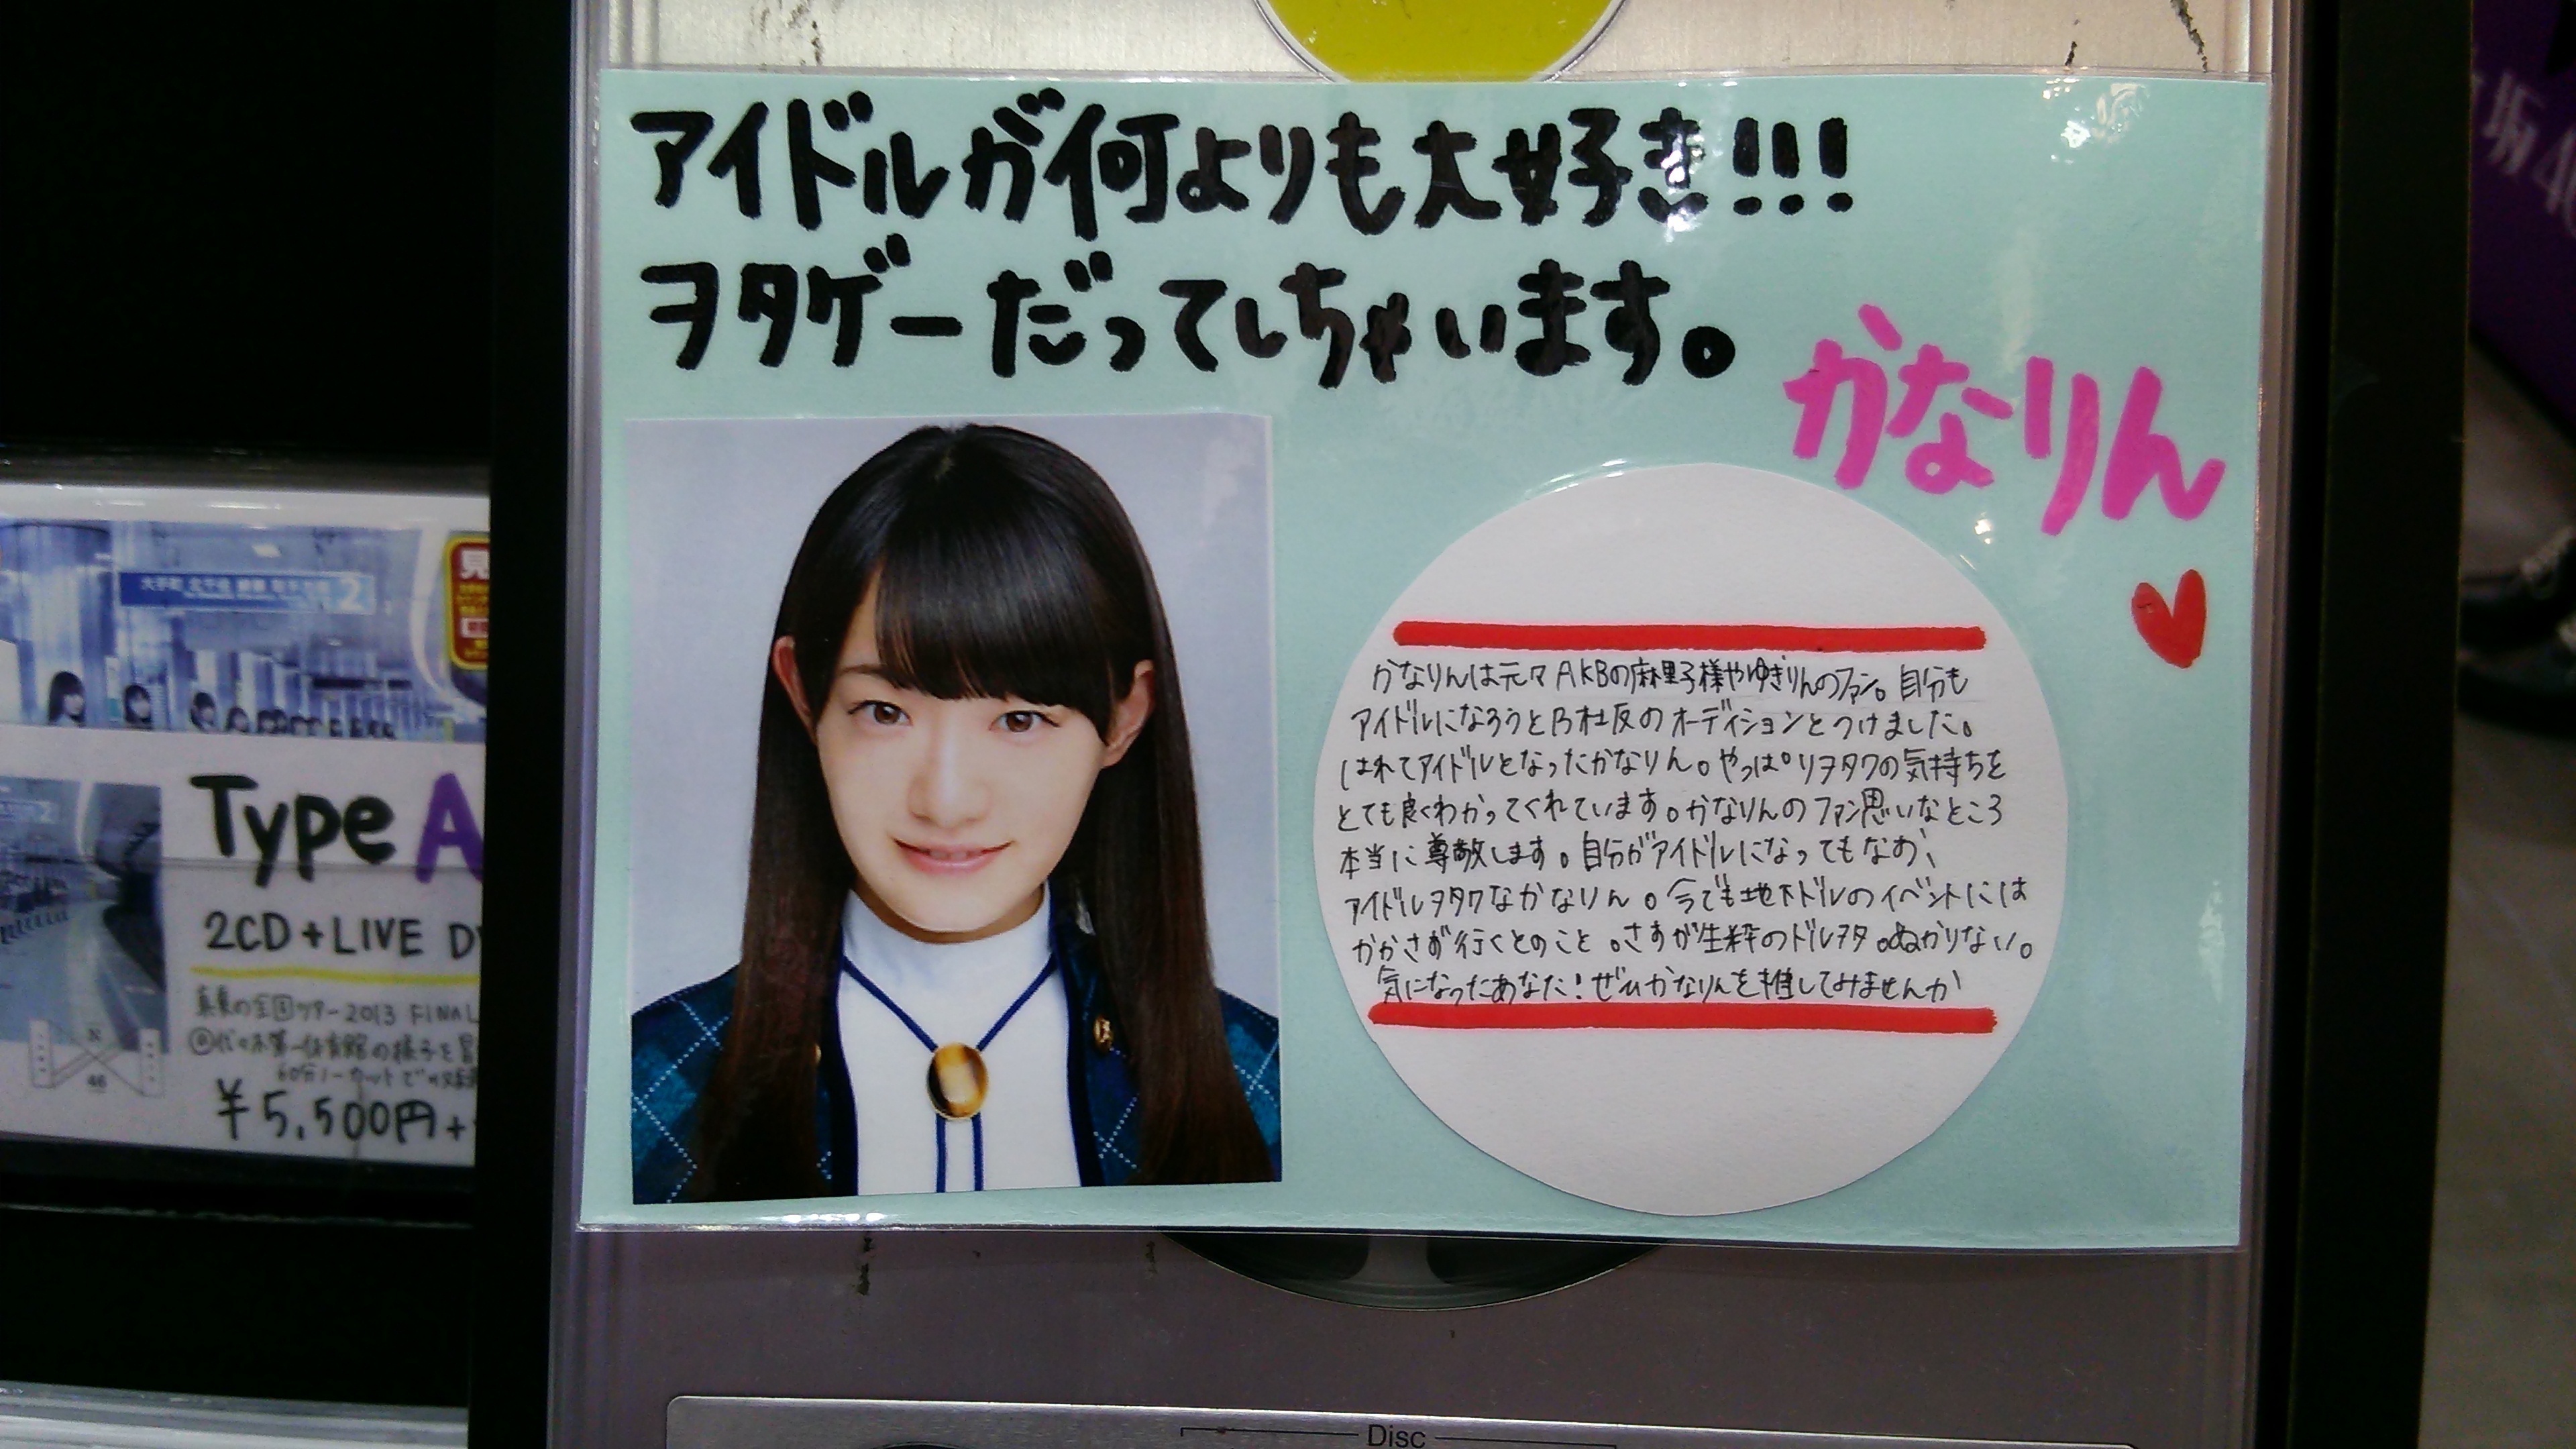 アイドルが何よりも大好き!!!
ヲタゲーだってしちゃいます。
かなりん
かなりんは元々AKBの麻里子様やゆきりんのファン。自分も
アイドルになろうと乃木坂のオーディションとうけました。
はれてアイドルとなったかなりん。やっぱりヲタクの気持ちを
とても良くわかってくれています。かなりんのファン思いなところ
本当に尊敬します。自分がアイドルになってもなお、
アイドルヲタクなかなりん。今でも地下ドルのイベントには
かかさず行くとのこと。さすが生粋のドルヲタ。ぬかりない。
気になったあなた!ぜひかなりんを推してみませんか
大手町 北千住 綾瀬 取手方面 2
見
Type A
2CD+LIVE D
真夏の全国ツアー2013 FINAL
@代々木第一体育館の様子を
60分ノーカットで収録
¥5,500円+
N
46
坂46
Disc